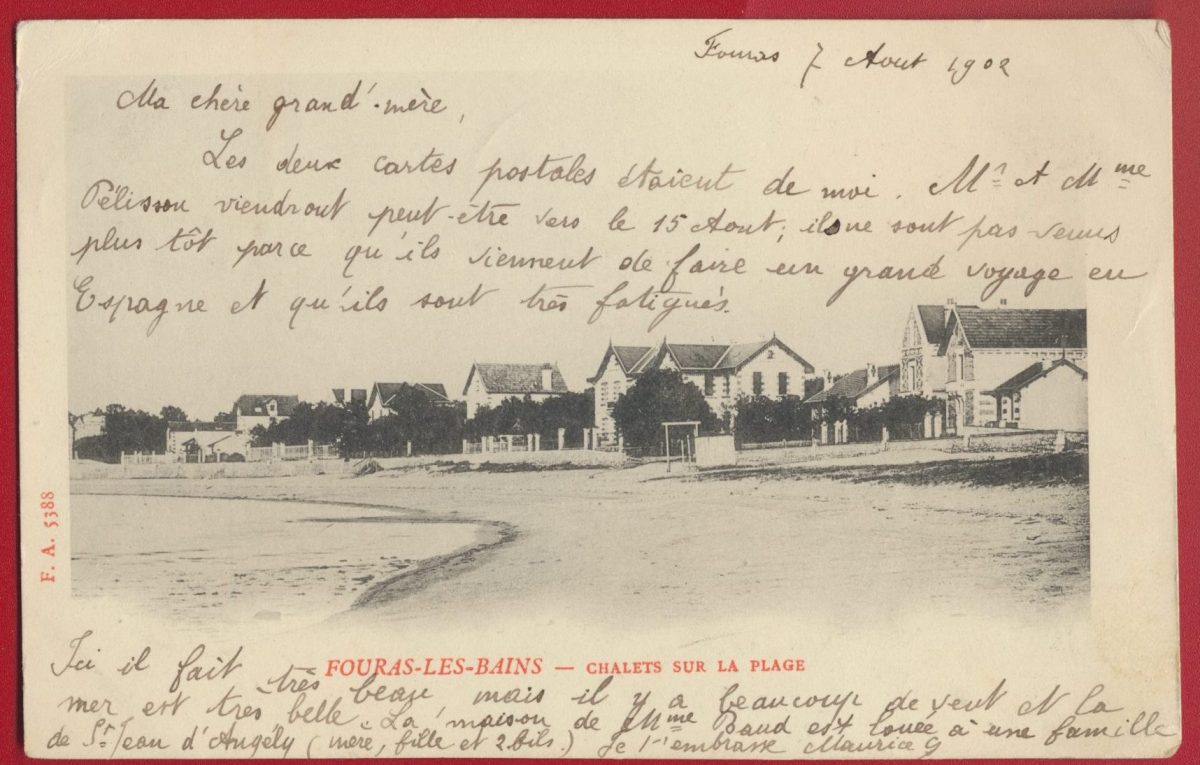 Fouras 7 Aout 1902
Ma chère grand'-mère,
Les deux cartes postales étaient de moi. Mr et Mme
Pélisson viendront peut-être vers le 15 Aout; ils ne sont pas venus
plus tôt parce qu'ils viennent de faire un grand voyage en
Espagne et qu'ils sont très fatigués.
F. A. 5388
FOURAS-LES-BAINS — CHALETS SUR LA PLAGE
Ici il fait très beau mais il y a beaucoup de vent et la
mer est très belle. La maison de Mme Baud est louée à une famille
de St Jean d'Angély (mère, fille et 2 fils.) Je t'embrasse Maurice G